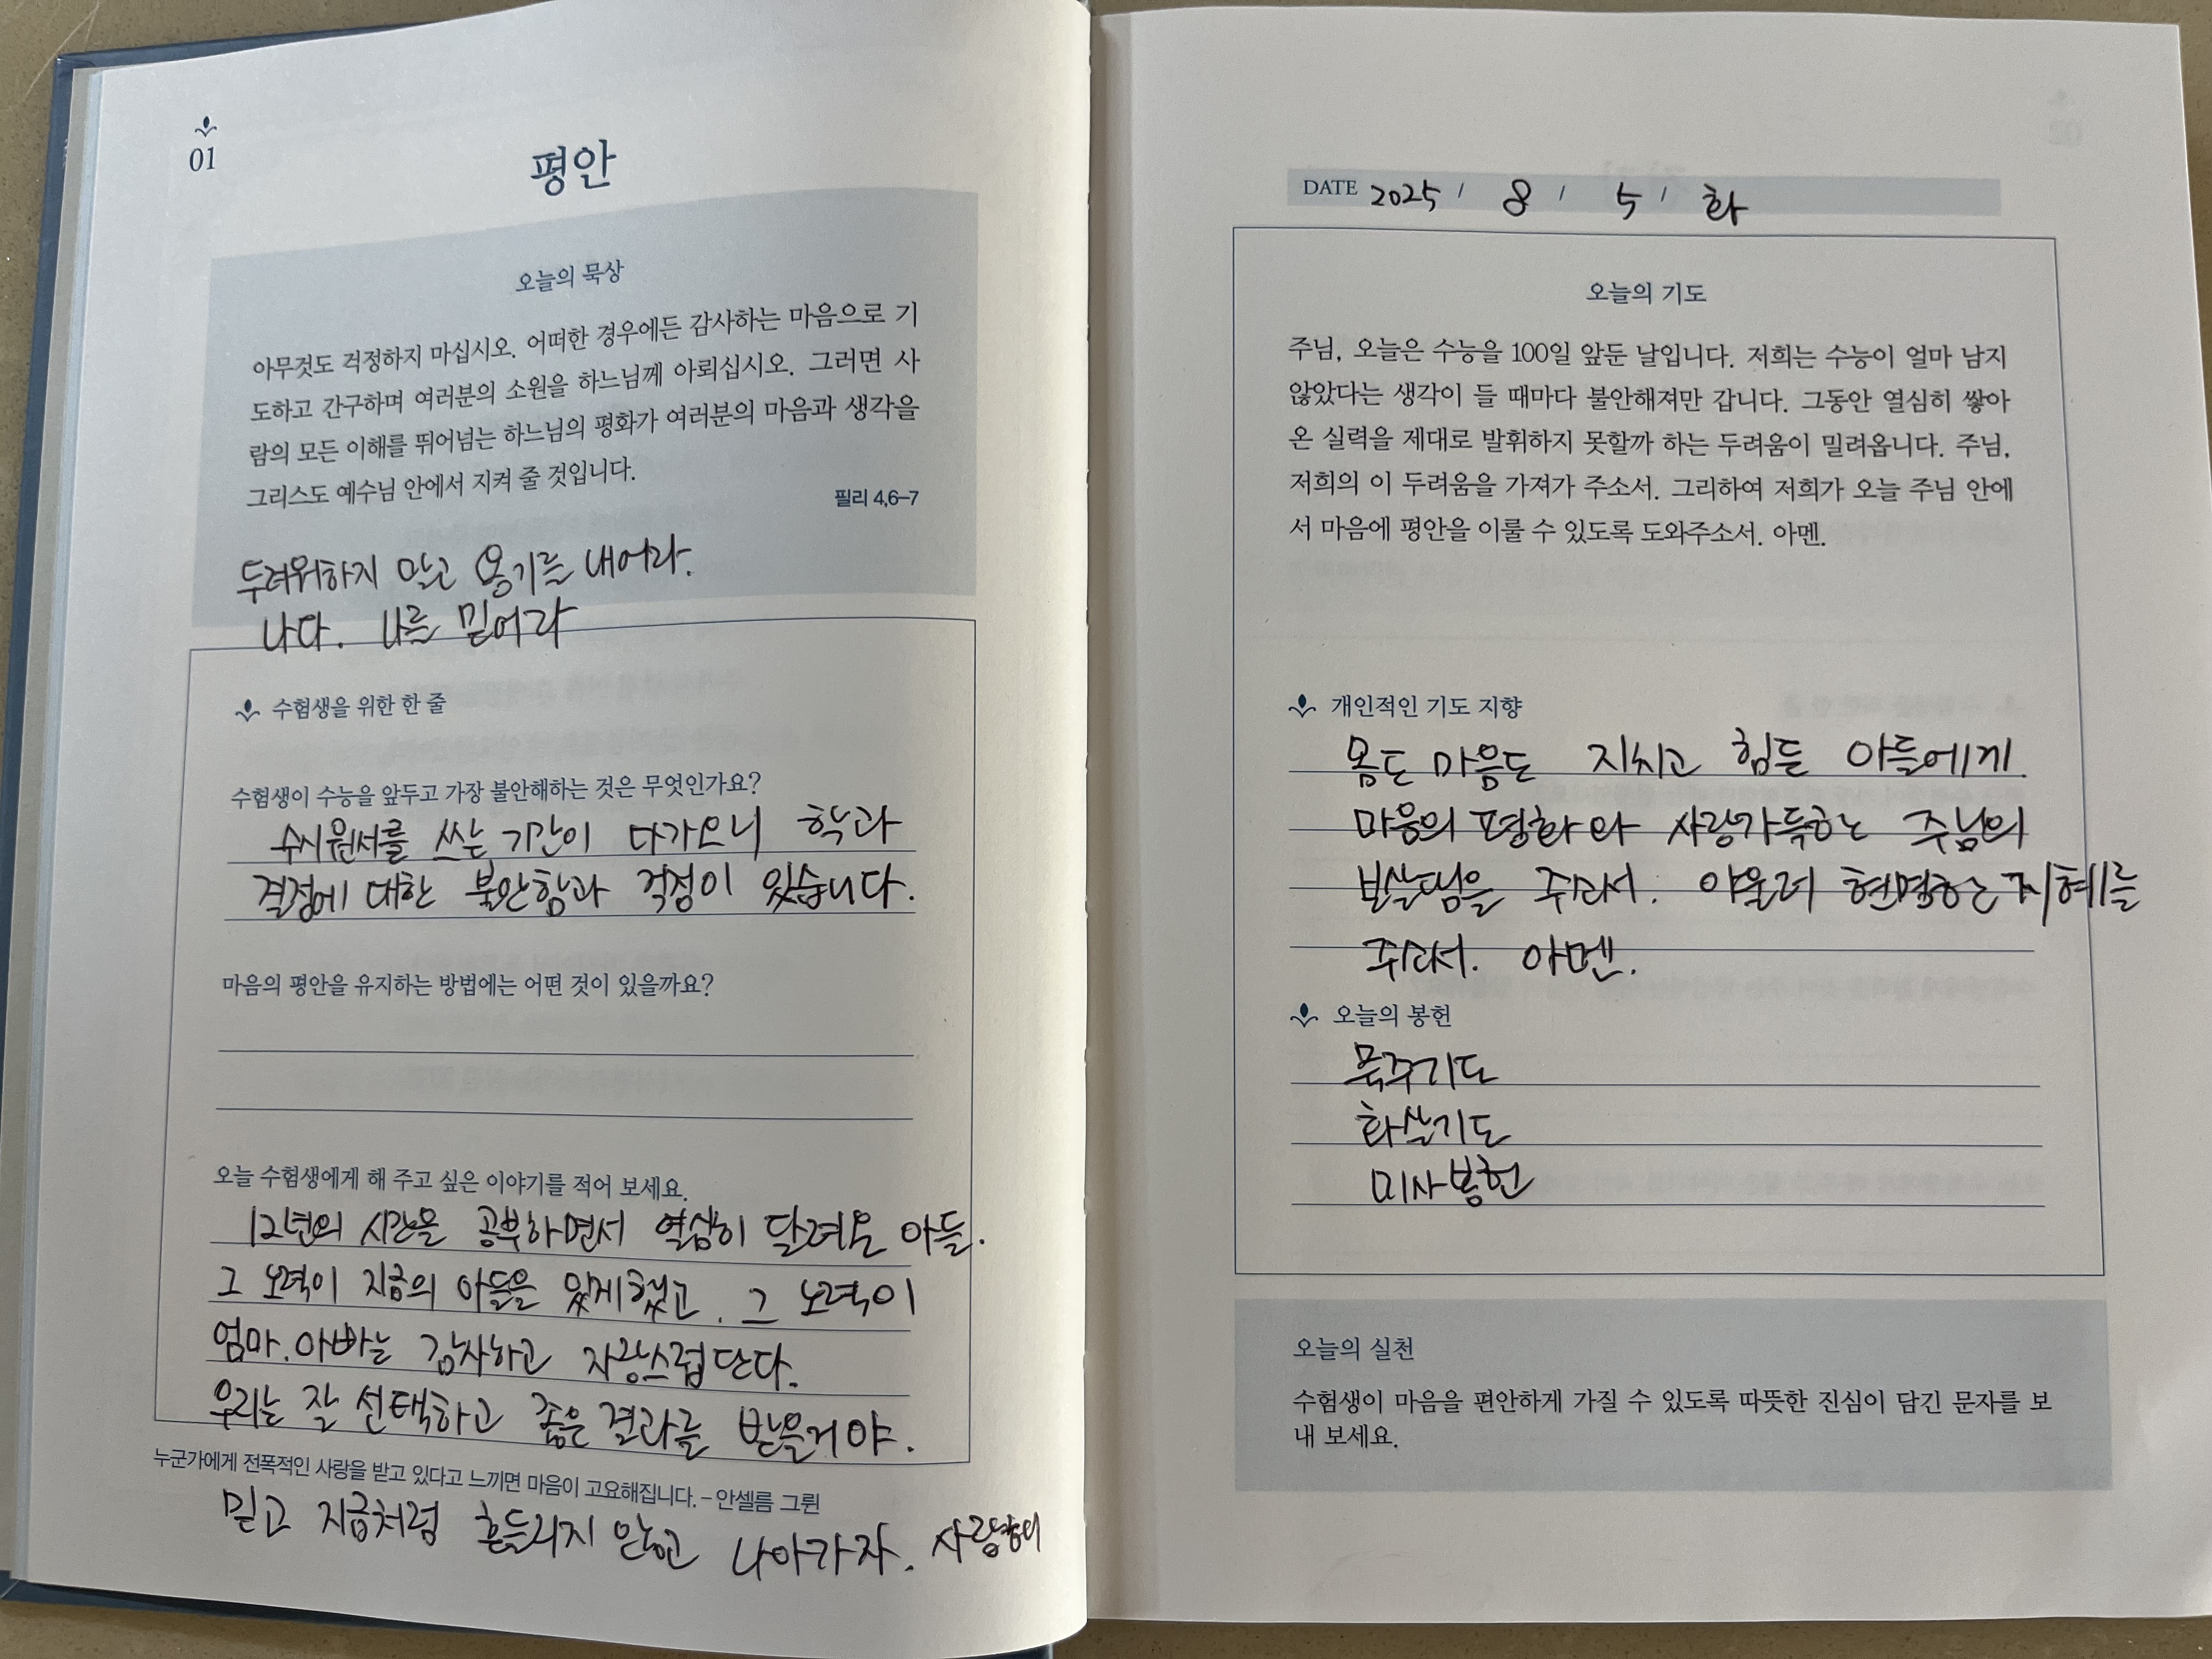 01
평안
오늘의 묵상
아무것도 걱정하지 마십시오. 어떠한 경우에든 감사하는 마음으로 기
도하고 간구하며 여러분의 소원을 하느님께 아뢰십시오. 그러면 사
람의 모든 이해를 뛰어넘는 하느님의 평화가 여러분의 마음과 생각을
그리스도 예수님 안에서 지켜 줄 것입니다.
필리 4,6–7
두려워하지 말고 용기를 내어라.
나다. 나를 믿어라
수험생을 위한 한 줄
수험생이 수능을 앞두고 가장 불안해하는 것은 무엇인가요?
수시원서를 쓰는 기간이 다가오니 학과
결정에 대한 불안함과 걱정이 있습니다.
마음의 평안을 유지하는 방법에는 어떤 것이 있을까요?
오늘 수험생에게 해 주고 싶은 이야기를 적어 보세요.
12년의 시간을 공부하면서 열심히 달려온 아들.
그 노력이 지금의 아들을 있게했고. 그 노력이
엄마.아빠는 감사하고 자랑스럽단다.
우리는 잘 선택하고 좋은 결과를 받을거야.
누군가에게 전폭적인 사랑을 받고 있다고 느끼면 마음이 고요해집니다. – 안셀름 그륀
믿고 지금처럼 흔들리지 않고 나아가자. 사랑해
DATE 2025 / 8 / 5 / 화
오늘의 기도
주님, 오늘은 수능을 100일 앞둔 날입니다. 저희는 수능이 얼마 남지
않았다는 생각이 들 때마다 불안해져만 갑니다. 그동안 열심히 쌓아
온 실력을 제대로 발휘하지 못할까 하는 두려움이 밀려옵니다. 주님,
저희의 이 두려움을 가져가 주소서. 그리하여 저희가 오늘 주님 안에
서 마음에 평안을 이룰 수 있도록 도와주소서. 아멘.
개인적인 기도 지향
몸도 마음도 지치고 힘든 아들에게
마음의 평화와 사랑가득한 주님의
보살님을 주소서. 아울러 현명한 지혜를
주소서. 아멘.
오늘의 봉헌
묵주기도
화살기도
미사봉헌
오늘의 실천
수험생이 마음을 편안하게 가질 수 있도록 따뜻한 진심이 담긴 문자를 보
내 보세요.